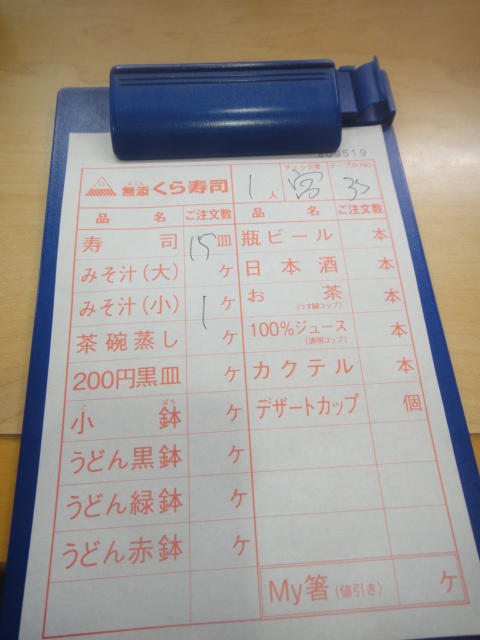 無添くら寿司 1人 チェック者 宮 テーブルNo. 35
品名 ご注文数 品名 ご注文数
寿司 15皿 瓶ビール 本
みそ汁(大) ケ 日本酒 本
みそ汁(小) 1ケ お茶(うす緑コップ) 本
茶碗蒸し ケ 100%ジュース(透明コップ) 本
200円黒皿 ケ カクテル 本
小鉢 ケ デザートカップ 個
うどん黒鉢 ケ
うどん緑鉢 ケ
うどん赤鉢 ケ
My箸(値引き) ケ